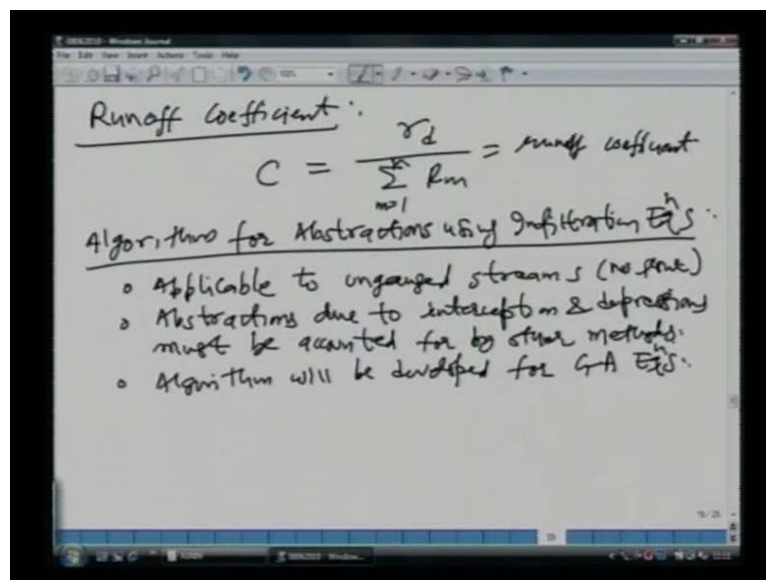 08062010 - Windows Journal
File Edit View Insert Actions Tools Help
Runoff Coefficient :
C = r_d / Σ_{m=1} R_m = runoff coefficient
Algorithms for Abstractions using Infiltration Eqns :
• Applicable to ungauged streams (no
• Abstractions due to interception & depressions
must be accounted for by other methods.
• Algorithm will be developed for GA Eqns.